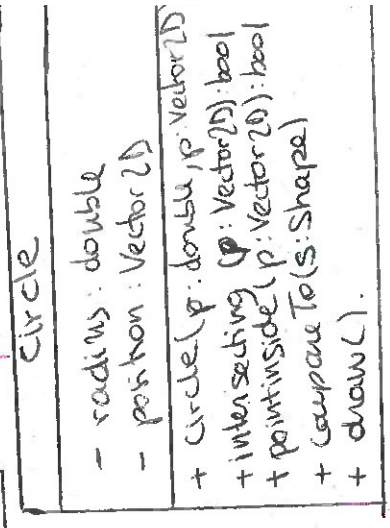 Circle
- radius : double
- position : Vector2D
+ Circle(p: double, p: Vector2D
+ intersecting (p: Vector2D): bool
+ pointinside (p: Vector2D): bool
+ compareTo(s: Shape)
+ draw().